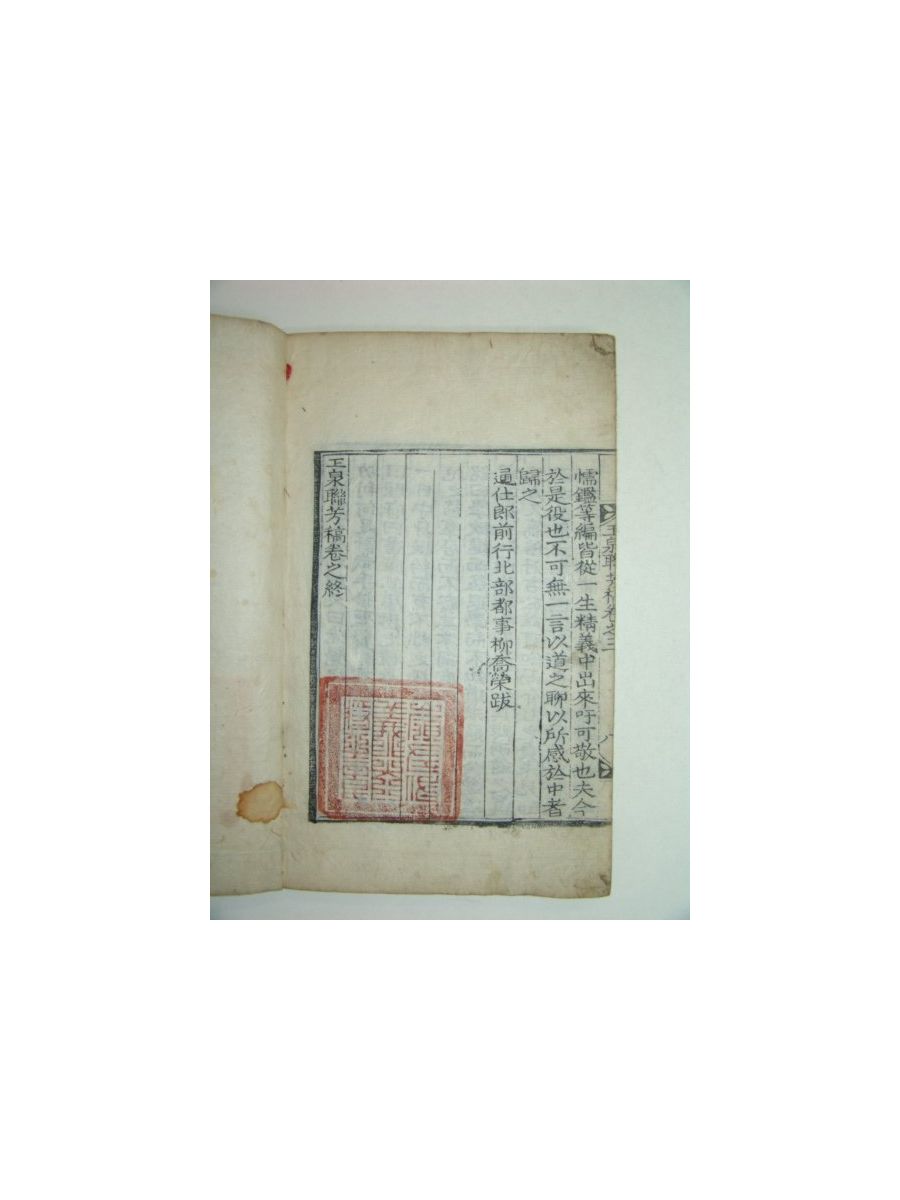 玉泉聯芳稿卷之三
懦鑑等編皆從一生精義中出來吁可敬也夫今
於是役也不可無一言以道之聊以所感於中者
歸之
通仕郎前行北部都事柳喬榮跋
玉泉聯芳稿卷之終